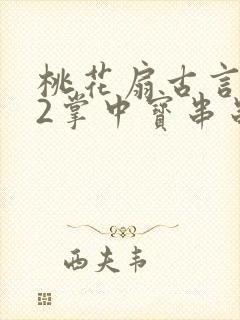 桃花扇古言
2掌中寶串
西夫韦